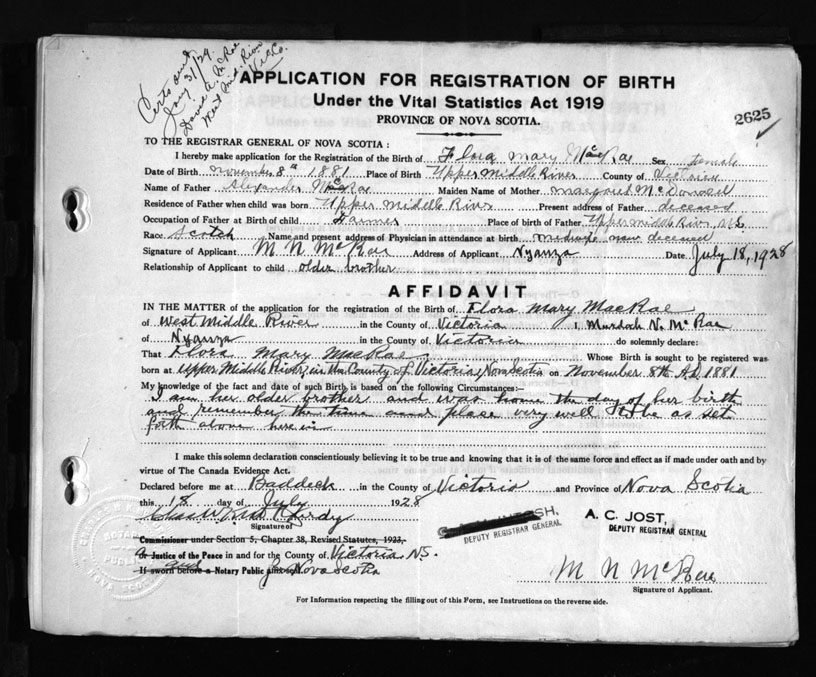 Certs out
Jany 31/29
David A. McRae
West Mid. River
Vic Co.
APPLICATION FOR REGISTRATION OF BIRTH
Under the Vital Statistics Act 1919
PROVINCE OF NOVA SCOTIA.
2625
TO THE REGISTRAR GENERAL OF NOVA SCOTIA:
I hereby make application for the Registration of the Birth of Flora Mary MacRae Sex female
Date of Birth november 8th 1881 Place of Birth Upper Middle River County of Victoria
Name of Father Alexander McRae Maiden Name of Mother margaret McDonald
Residence of Father when child was born Upper Middle River Present address of Father deceased
Occupation of Father at Birth of child Farmer Place of birth of Father Upper middle River N.S.
Race Scotch Name and present address of Physician in attendance at birth midwife now deceased
Signature of Applicant M N McRae Address of Applicant Nyanza Date July 18, 1928
Relationship of Applicant to child older brother
AFFIDAVIT
IN THE MATTER of the application for the registration of the Birth of Flora Mary MacRae
of West Middle River in the County of Victoria I, Murdoch N. McRae
of Nyanza in the County of Victoria do solemnly declare:
That Flora Mary MacRae Whose Birth is sought to be registered was
born at Upper Middle River, in the County of Victoria, Nova Scotia on November 8th A.D. 1881
My knowledge of the fact and date of such Birth is based on the following Circumstances:—
I am her older brother and was home the day of her birth
and remember the time and place very well to be as set
forth above herein
I make this solemn declaration conscientiously believing it to be true and knowing that it is of the same force and effect as if made under oath and by
virtue of The Canada Evidence Act.
Declared before me at Baddeck in the County of Victoria and Province of Nova Scotia
this 18 day of July 1928
Signature of
Commissioner under Section 5, Chapter 38, Revised Statutes, 1923,
Or Justice of the Peace in and for the County of Victoria N.S.
If sworn before a Notary Public for Nova Scotia
DEPUTY REGISTRAR GENERAL
A. C. JOST,
DEPUTY REGISTRAR GENERAL
M N McRae
Signature of Applicant.
For Information respecting the filling out of this Form, see Instructions on the reverse side.